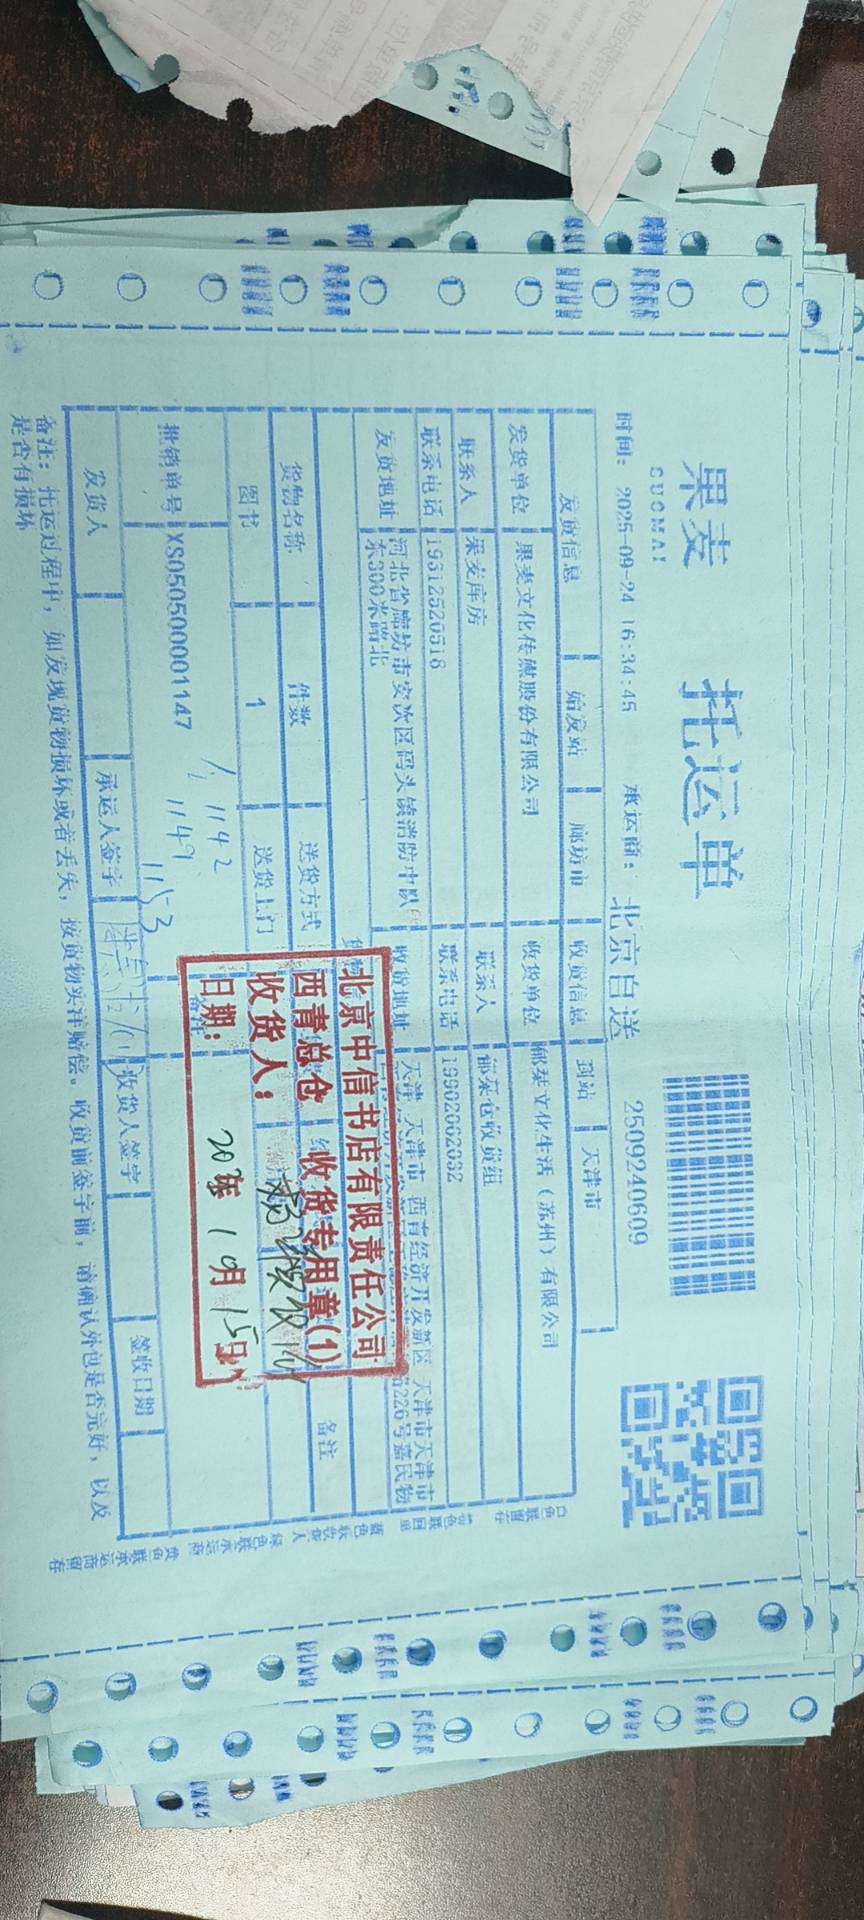 果麦 托运单
GUOMAI
时间： 2025-09-24 16:34:45 承运商： 北京自送 2509240609
发货信息 始发站 廊坊市 收货信息 到站 天津市
发货单位 果麦文化传媒股份有限公司 收货单位 郁栞文化生活（苏州）有限公司
联系人 果麦库房 联系人 郁栞仓收货组
联系电话 19312520516 联系电话 19902002032
发货地址 河北省廊坊市安次区码头镇消防中队东300米路北 收货地址 天津 天津市 西青经济开发新区 天津市天津市
226号嘉民物
货物名称 件数 送货方式 备注
图书 1 送货上门
批销单号 XS050500001147
1142
1149
115-3
发货人 承运人签字 收货人签字 签收日期
备注：托运过程中，如发现货物损坏或者丢失，按货物实洋赔偿。收货前签字前，请确认外包是否完好，以及
是否有损坏
北京中信书店有限责任公司
西青总仓 收货专用章(1)
收货人：
日期： 2025年10月15日
白色联留存
蓝色联收货人
绿色联承运商
黄色联承运商留存